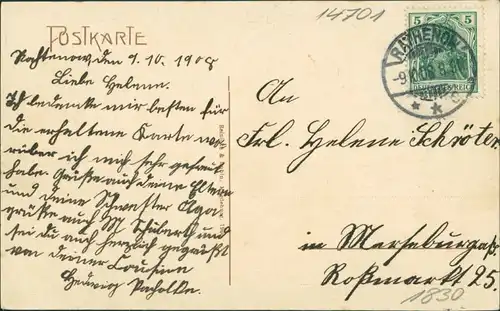 POSTKARTE
14701
5 5
RATHENOW
DEUTSCHES REICH
Rathenow, den 9.10.1908
Liebe Helene.
Ich bedanke mir besten für
die erhaltene Karte wo
rüber ich mich sehr gefreut
habe. Grüße auch deine Eltern
und deine Schwester
grüße auch und
sei du auch herzlich gegrüßt
von deiner Cousine
Hedwig
An
Frl. Helene Schröter
in Merseburg a/S.
Roßmarkt 25.
1830